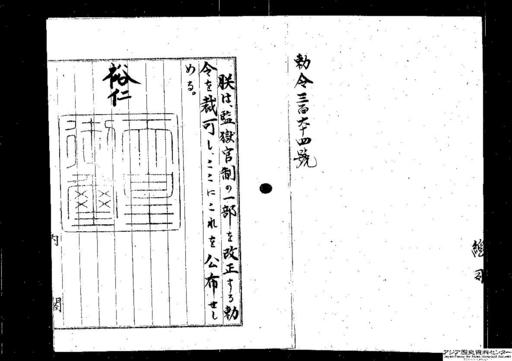 勅令三百六十四號
朕は、監獄官制の一部を改正する勅
令を裁可し、ここにこれを公布せし
める。
裕仁
内閣
アジア歴史資料センター